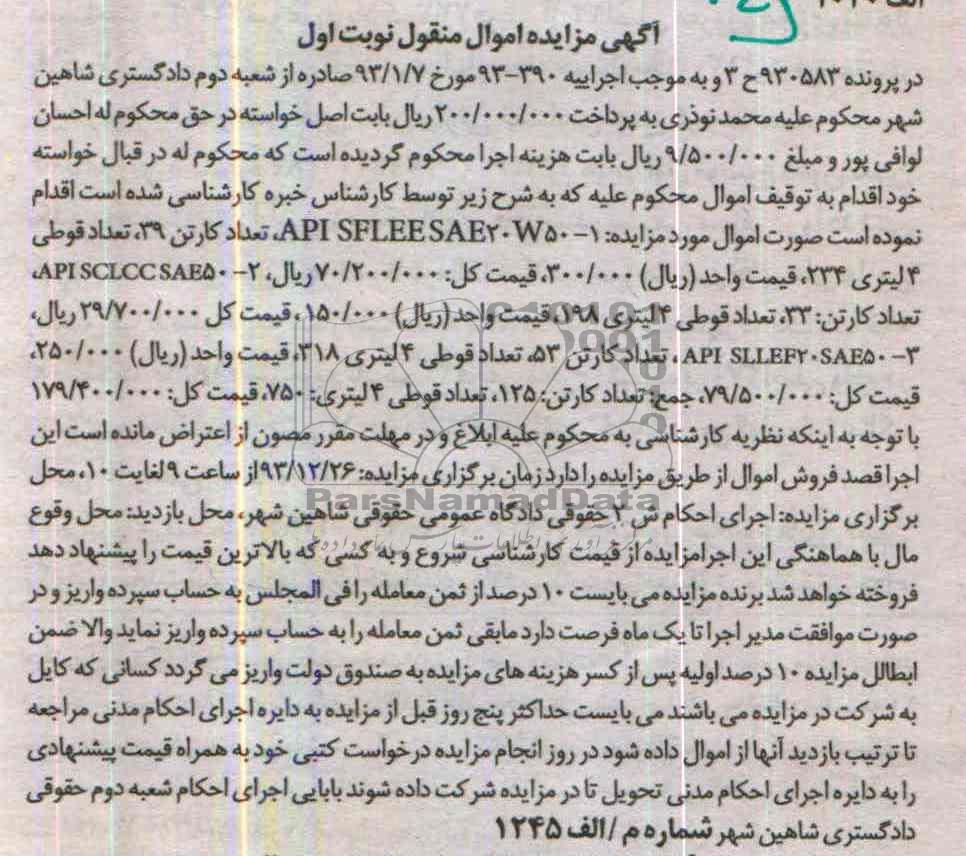 الف
آگهی مزایده اموال منقول نوبت اول
در پرونده ۹۳۰۵۸۳ح ۳ و به موجب اجراییه ۳۹۰-۹۳ مورخ ۹۳/۱/۷ صادره از شعبه دوم دادگستری شاهین
شهر محکوم علیه محمد نوذری به پرداخت ۲۰۰/۰۰۰/۰۰۰ ریال بابت اصل خواسته در حق محکوم له احسان
لوافی پور و مبلغ ۹/۵۰۰/۰۰۰ ریال بابت هزینه اجرا محکوم گردیده است که محکوم له در قبال خواسته
خود اقدام به توقیف اموال محکوم علیه که به شرح زیر توسط کارشناس خبره کارشناسی شده است اقدام
نموده است صورت اموال مورد مزایده: ۱- API SFLEE SAE۲۰W۵۰، تعداد کارتن ۳۹، تعداد قوطی
۴ لیتری ۲۳۴، قیمت واحد (ریال) ۳۰۰/۰۰۰، قیمت کل: ۷۰/۲۰۰/۰۰۰ ریال، ۲- API SCLCC SAE۵۰،
تعداد کارتن: ۳۳، تعداد قوطی ۴ لیتری ۱۹۸، قیمت واحد (ریال) ۱۵۰/۰۰۰، قیمت کل ۲۹/۷۰۰/۰۰۰ ریال،
۳- API SLLEF۲۰SAE۵۰، تعداد کارتن ۵۳، تعداد قوطی ۴ لیتری ۳۱۸، قیمت واحد (ریال) ۲۵۰/۰۰۰،
قیمت کل: ۷۹/۵۰۰/۰۰۰، جمع: تعداد کارتن: ۱۲۵، تعداد قوطی ۴ لیتری: ۷۵۰، قیمت کل: ۱۷۹/۴۰۰/۰۰۰
با توجه به اینکه نظریه کارشناسی به محکوم علیه ابلاغ و در مهلت مقرر مصون از اعتراض مانده است این
اجرا قصد فروش اموال از طریق مزایده را دارد زمان برگزاری مزایده: ۹۳/۱۲/۲۶ از ساعت ۹ لغایت ۱۰، محل
ParsNamadData
برگزاری مزایده: اجرای احکام ش ۲ حقوقی دادگاه عمومی حقوقی شاهین شهر، محل بازدید: محل وقوع
مال با هماهنگی این اجرا مزایده از قیمت کارشناسی شروع و به کسی که بالاترین قیمت را پیشنهاد دهد
فروخته خواهد شد برنده مزایده می بایست ۱۰ درصد از ثمن معامله را فی المجلس به حساب سپرده واریز و در
صورت موافقت مدیر اجرا تا یک ماه فرصت دارد مابقی ثمن معامله را به حساب سپرده واریز نماید والا ضمن
ابطالل مزایده ۱۰ درصد اولیه پس از کسر هزینه های مزایده به صندوق دولت واریز می گردد کسانی که کایل
به شرکت در مزایده می باشند می بایست حداکثر پنج روز قبل از مزایده به دایره اجرای احکام مدنی مراجعه
تا ترتیب بازدید آنها از اموال داده شود در روز انجام مزایده درخواست کتبی خود به همراه قیمت پیشنهادی
را به دایره اجرای احکام مدنی تحویل تا در مزایده شرکت داده شوند بابایی اجرای احکام شعبه دوم حقوقی
دادگستری شاهین شهر شماره م /الف ۱۲۴۵